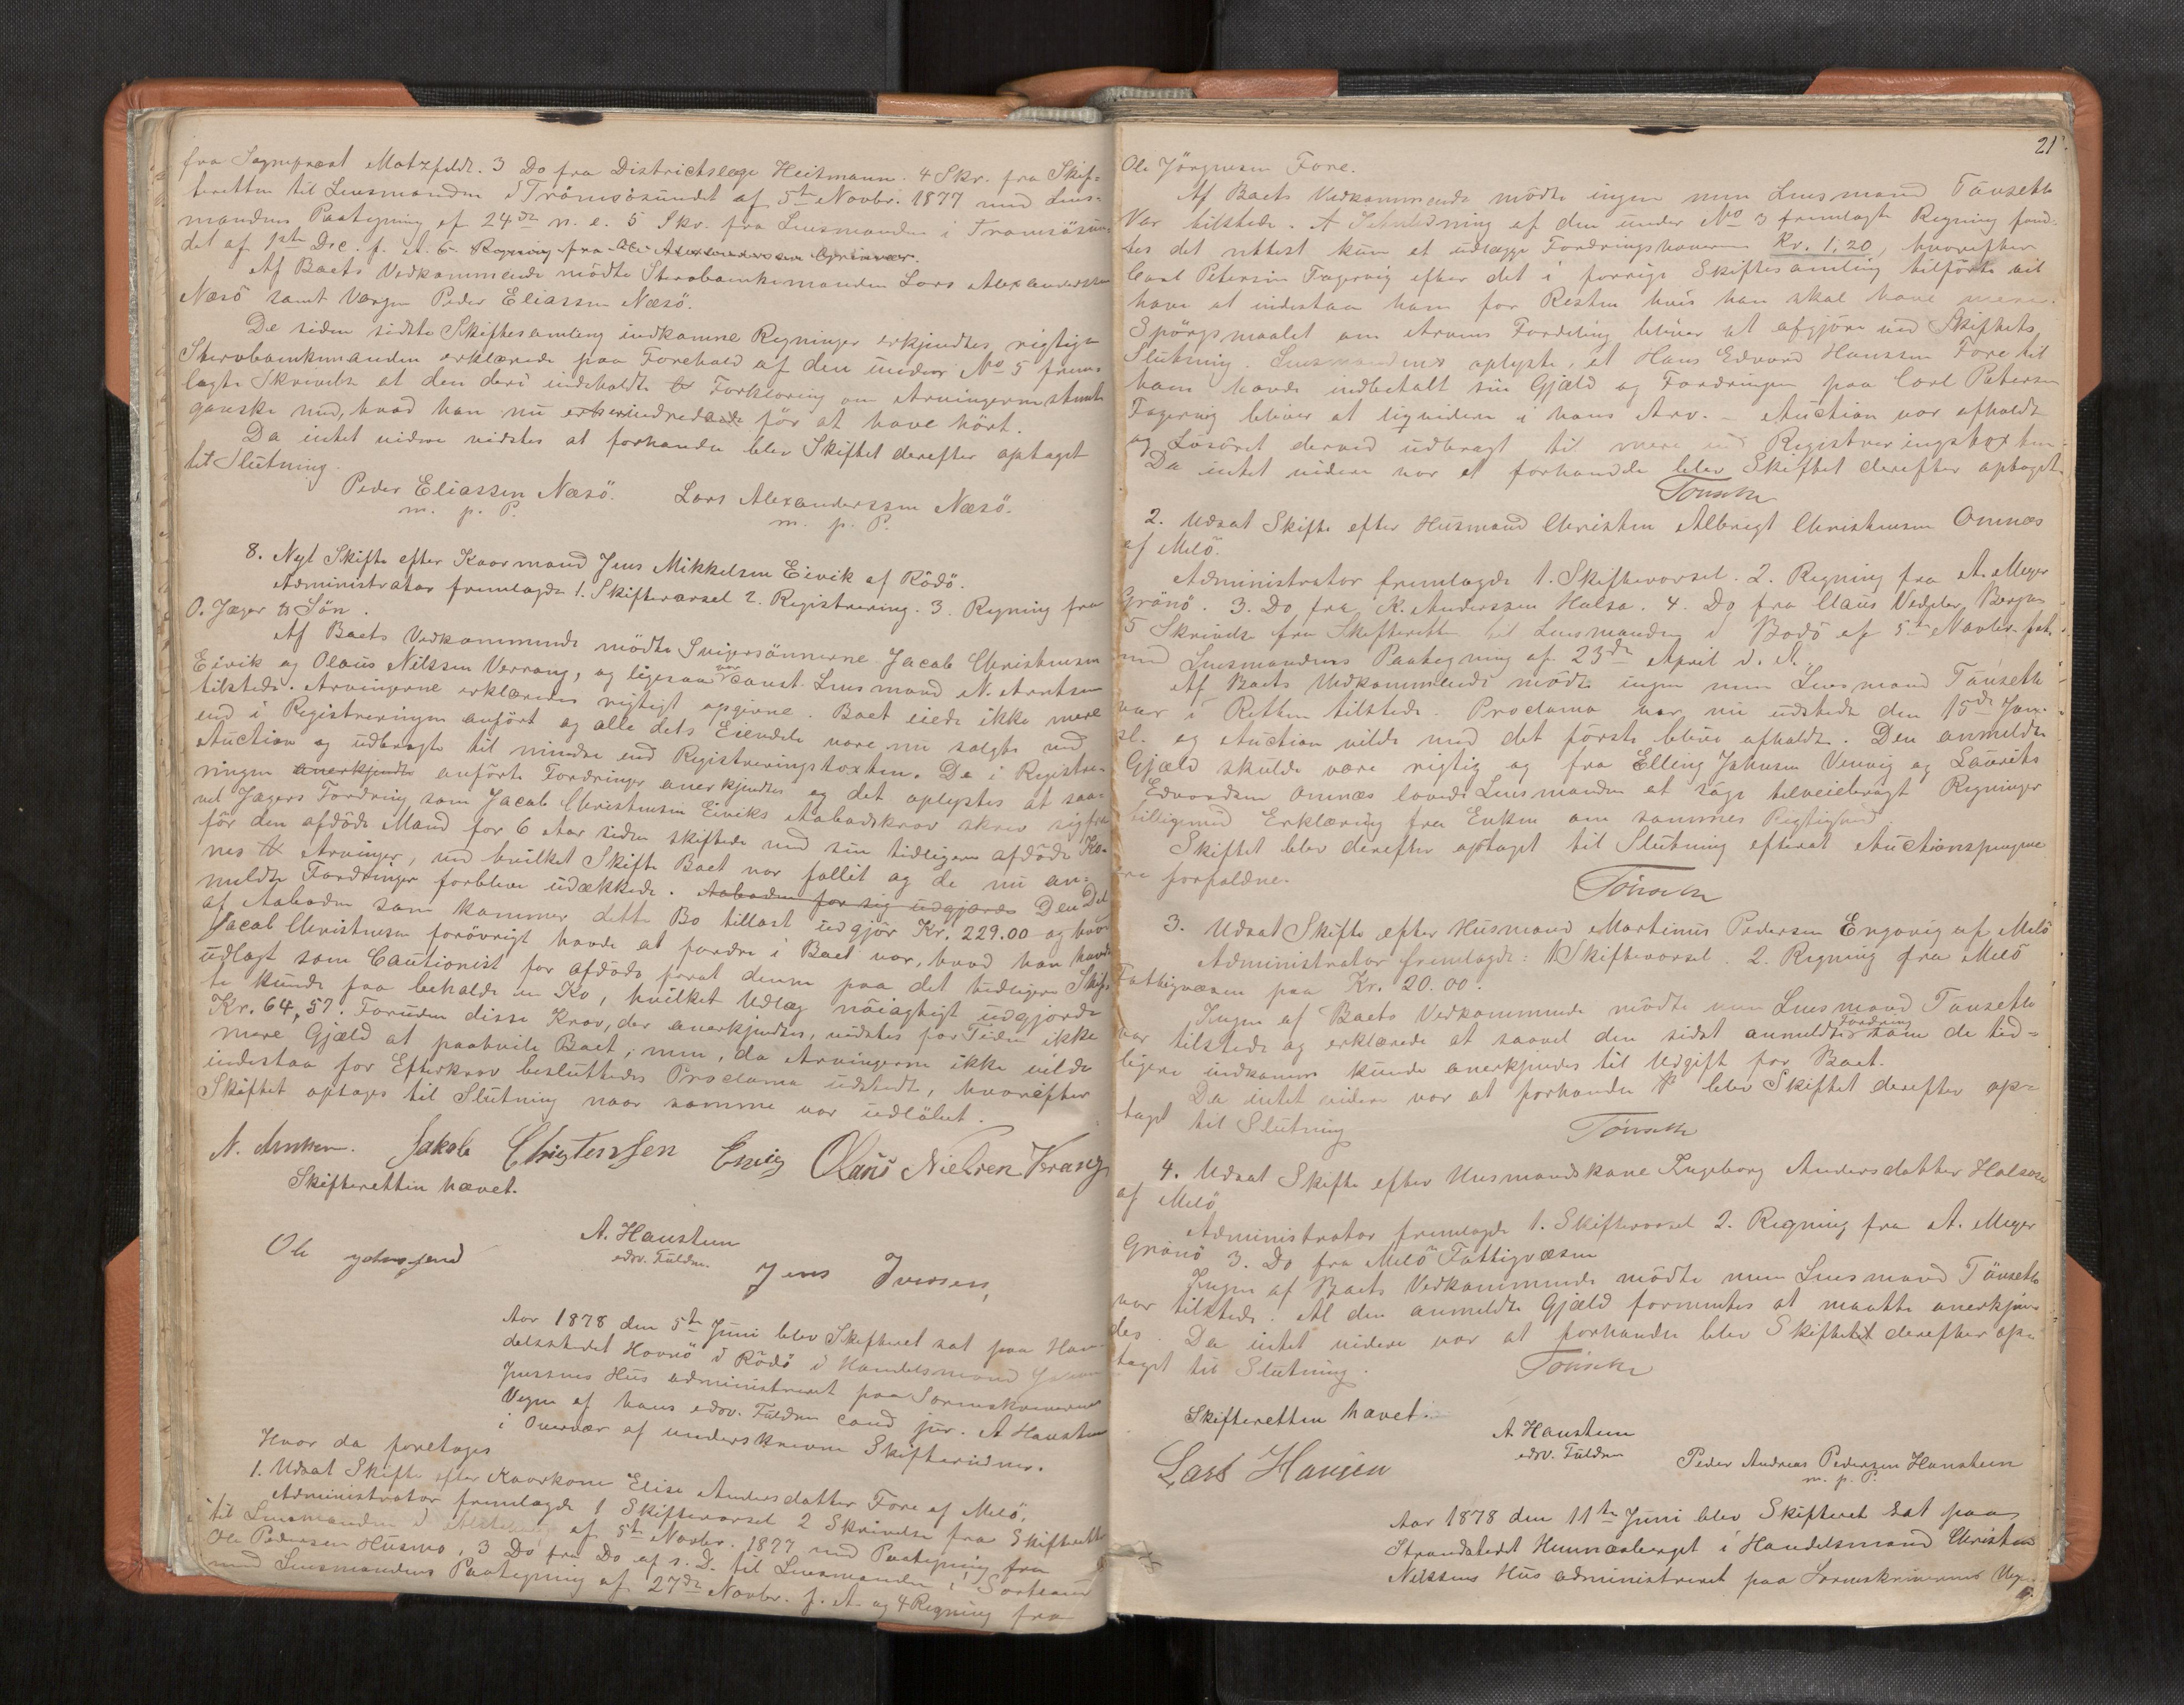 fra Sognepræst Motzfeldt. 3 Do fra Districtslæge Heitmann. 4 Skr. fra Skif-
teretten til Lensmanden i Tromsösundet af 5te Novbr. 1877 med Lens-
mandens Paategning af 24de n. e. 5 Skr. fra Lensmanden i Tromsösun-
det af 1ste Dec. f. A. 6 Regning fra Ole Alexandersen
Af Boets Vedkommende mödte Stervboenkemanden Lars Alexandersen
Næsö samt Værgen Peder Eliassen Næsö.
De siden sidste Skiftesamling indkomne Regninger erkjendtes rigtige
Stervboenkemanden erklærede paa Forehold af den under No 5 frem-
lagte Skrivelse at den deri indeholdte Forklaring om Arvingerne stemte
ganske med, hvad han nu erherindrede för at have hört.
Da intet videre vidstes at forhandle blev Skiftet derefter optaget
til Slutning.
Peder Eliassen Næsö. Lars Alexanderssen Næsö.
m. p. P. m. p. P.
8. Nyt Skifte efter Kaarmand Jens Mikkelsen Eivik af Rödö.
Administrator fremlagde 1. Skiftevarsel 2. Registrering. 3. Regning fra
O. Jæger & Sön.
Af Boets Vedkommende mödte Svigersönnerne Jacob Christensen
Eivik og Olaus Nilssen Verrang, og ligesaa var const. Lensmand N. Arntsen
tilstede. Arvingerne erklæredes rigtigt opgivne. Boet eiede ikke mere
end i Registreringen anfört og alle dets Eiendele vare nu solgte ved
Auction og udbragte til mindre end Registreringstaxten. De i Registre-
ringen anerkjendte anförte Fordringer anerkjendtes og det oplystes at saa-
vel Jægers Fordring, som Jacob Christensen Eiviks Aabodskrav skrev sig fra
för den afdöde Mand for 6 Aar siden skiftede med sin tidligere afdöde Ko-
nes Arvinger, ved hvilket Skifte Boet var fallit og de nu an-
meldte Fordringer forbleve udækkede. Aaboden for sig udgjorde Den Del
af Aaboden som kommer dette Bo tillast udgjör Kr. 229.00 og hvad
Jacob Christensen forövrigt havde at fordre i Boet var, hvad han havde
udlagt som Cautionist for afdöde forat denne paa det tidligere Skif-
te kunde faa beholde en Ko, hvilket Udlæg nöiagtigt udgjorde
Kr. 64,57. Foruden disse Krav, der anerkjendtes, vidstes for Tiden ikke
mere Gjæld at paahvile Boet; men, da Arvingerne ikke vilde
indestaa for Efterkrav besluttedes Proclama udstedt, hvorefter
Skiftet optages til Slutning naar samme var udlöbet.
N. Arntsen. Jakob Christenssen Eivig Olaus Nielsen Verang
Skifteretten hævet.
A. Hausteen
edsv. Fuldm.
Ole Jens Iversen,
Aar 1878 den 5te Juni blev Skifteret sat paa Han-
delsstedet Havnö i Rödö i Handelsmand
Jenssens Hus administreret paa Sorenskriverens
Vegne af hans edsv. Fuldm cand jur. A Hausteen
i Overvær af underskrevne Skiftevidner.
Hvor da foretoges
1. Udsat Skifte efter Kaarkone Elise Andersdatter Fore af Melö.
Administrator fremlagde 1 Skiftevarsel 2 Skrivelse fra Skifteretten
til Lensmanden i af 5te Novbr. 1877 med Paategning fra
Ole Pedersen Husmo, 3 Do fra Do af s. D. til Lensmanden i Sortland
med Lensmandens Paategning af 27de Novbr. f. A. og 4 Regning fra
21
Ole Jörgensen Fore.
Af Boets Vedkommende mödte ingen men Lensmand Tönseth
var tilstede. I Anledning af den under No 3 fremlagte Regning fand-
tes det rettest kun at udlægge Fordringshaveren Kr. 1,20, hvorefter
Carl Petersen Fagervig efter det i forrige Skiftesamling tilförte vil
have at indestaa ham for Resten hvis han skal have mere.
Spörgsmaalet om Arvens Fordeling bliver at afgjöre ved Skiftets
Slutning. Lensmanden oplyste, at Hans Edvard Hanssen Fore til
ham havde indbetalt sin Gjæld og Fordringen paa Carl Petersen
Fagervig bliver at liqvidere i hans Arv. – Auction var afholdt
og Lösöret derved udbragt til mere end Registreringstaxten.
Da intet videre var at forhandle blev Skiftet derefter optaget.
Tönseth
2. Udsat Skifte efter Husmand Christen Albregt Christensen Omnæs
af Melö.
Administrator fremlagde 1. Skiftevarsel. 2. Regning fra A. Meyer
Grönö. 3. Do fra K. Anderssen Halsa. 4. Do fra Claus Vedeler Bergen
5 Skrivelse fra Skifteretten til Lensmanden i Bodö af 5te Novbr. f. A.
med Lensmandens Paategning af 23de April d. A.
Af Boets Vedkommende mödte ingen men Lensmand Tönseth
var i Retten tilstede. Proclama var nu udstedt den 15de Jan.
sl. og Auction vilde med det förste blive afholdt. Den anmeldte
Gjæld skulde være rigtig og fra Elling Johnsen Venvig og Laurits
Edvardsen Omnæs lovede Lensmanden at söge tilveiebragt Regninger
tilligemed Erklæring fra Enken om sammes Rigtighed.
Skiftet blev derefter optaget til Slutning efterat Auctionspengene
ere forfaldne.
Tönseth
3. Udsat Skifte efter Husmand Martinus Pedersen Engavig af Melö
Administrator fremlagde: 1 Skiftevarsel. 2. Regning fra Melö
Fattigvæsen paa Kr. 20.00.
Ingen af Boets Vedkommende mödte men Lensmand Tönseth
var tilstede og erklærede at saavel den sidst anmeldte Fordring som de tid-
ligere indkomne kunde anerkjendes til Udgift for Boet.
Da intet videre var at forhandle blev Skiftet derefter op-
taget til Slutning
Tönseth
4. Udsat Skifte efter Husmandskone Ingeborg Andersdatter Halsen
af Melö
Administrator fremlagde 1. Skiftevarsel 2. Regning fra A. Meyer
Grönö 3. Do fra Melö Fattigvæsen
Ingen af Boets Vedkommende mödte men Lensmand Tönseth
var tilstede. Al den anmeldte Gjæld formentes at maatte anerkjen-
des. Da intet videre var at forhandle blev Skiftet derefter op-
taget til Slutning.
Tönseth
Skifteretten hævet.
A Hausteen
edsv. Fuldm
Lars Hansen Peder Andreas Pedersen Hanstein
m. p. P.
Aar 1878 den 11te Juni blev Skifteret sat paa
Strandstedet Hemnæsberget i Handelsmand Christen
Nilssens Hus administreret paa Sorenskriverens Veg-